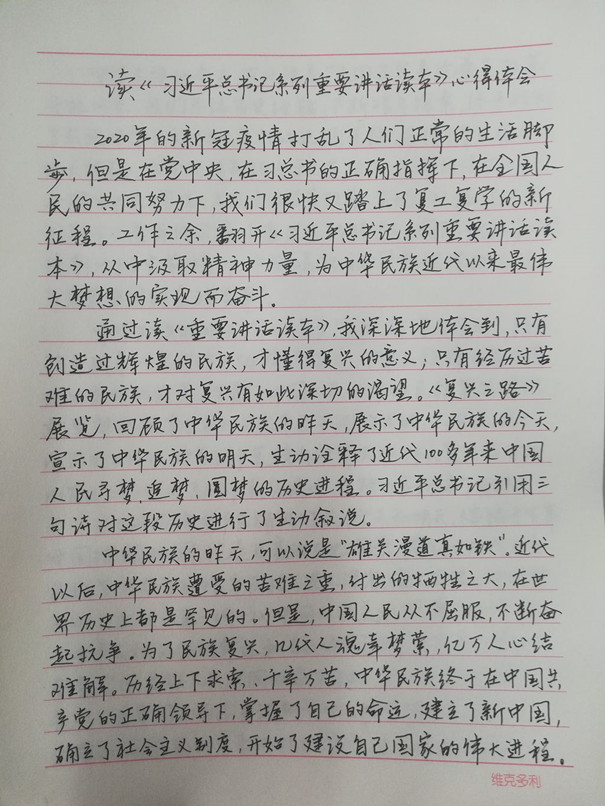 读《习近平总书记系列重要讲话读本》心得体会
2020年的新冠疫情打乱了人们正常的生活脚
步,但是在党中央,在习总书的正确指挥下,在全国人
民的共同努力下,我们很快又踏上了复工复学的新
征程。工作之余,翻开《习近平总书记系列重要讲话读
本》,从中汲取精神力量,为中华民族近代以来最伟
大梦想的实现而奋斗。
通过读《重要讲话读本》,我深深地体会到,只有
创造过辉煌的民族,才懂得复兴的意义;只有经历过苦
难的民族,才对复兴有如此深切的渴望。《复兴之路》
展览,回顾了中华民族的昨天,展示了中华民族的今天,
宣示了中华民族的明天,生动诠释了近代100多年来中国
人民寻梦、追梦、圆梦的历史进程。习近平总书记引用三
句诗对这段历史进行了生动叙说。
中华民族的昨天,可以说是“雄关漫道真如铁”。近代
以后,中华民族遭受的苦难之重,付出的牺牲之大,在世
界历史上都是罕见的。但是,中国人民从不屈服,不断奋
起抗争。为了民族复兴,几代人魂牵梦萦,亿万人心结
难解。历经上下求索、千辛万苦,中华民族终于在中国共
产党的正确领导下,掌握了自己的命运,建立了新中国,
确立了社会主义制度,开始了建设自己国家的伟大进程。
维克多利